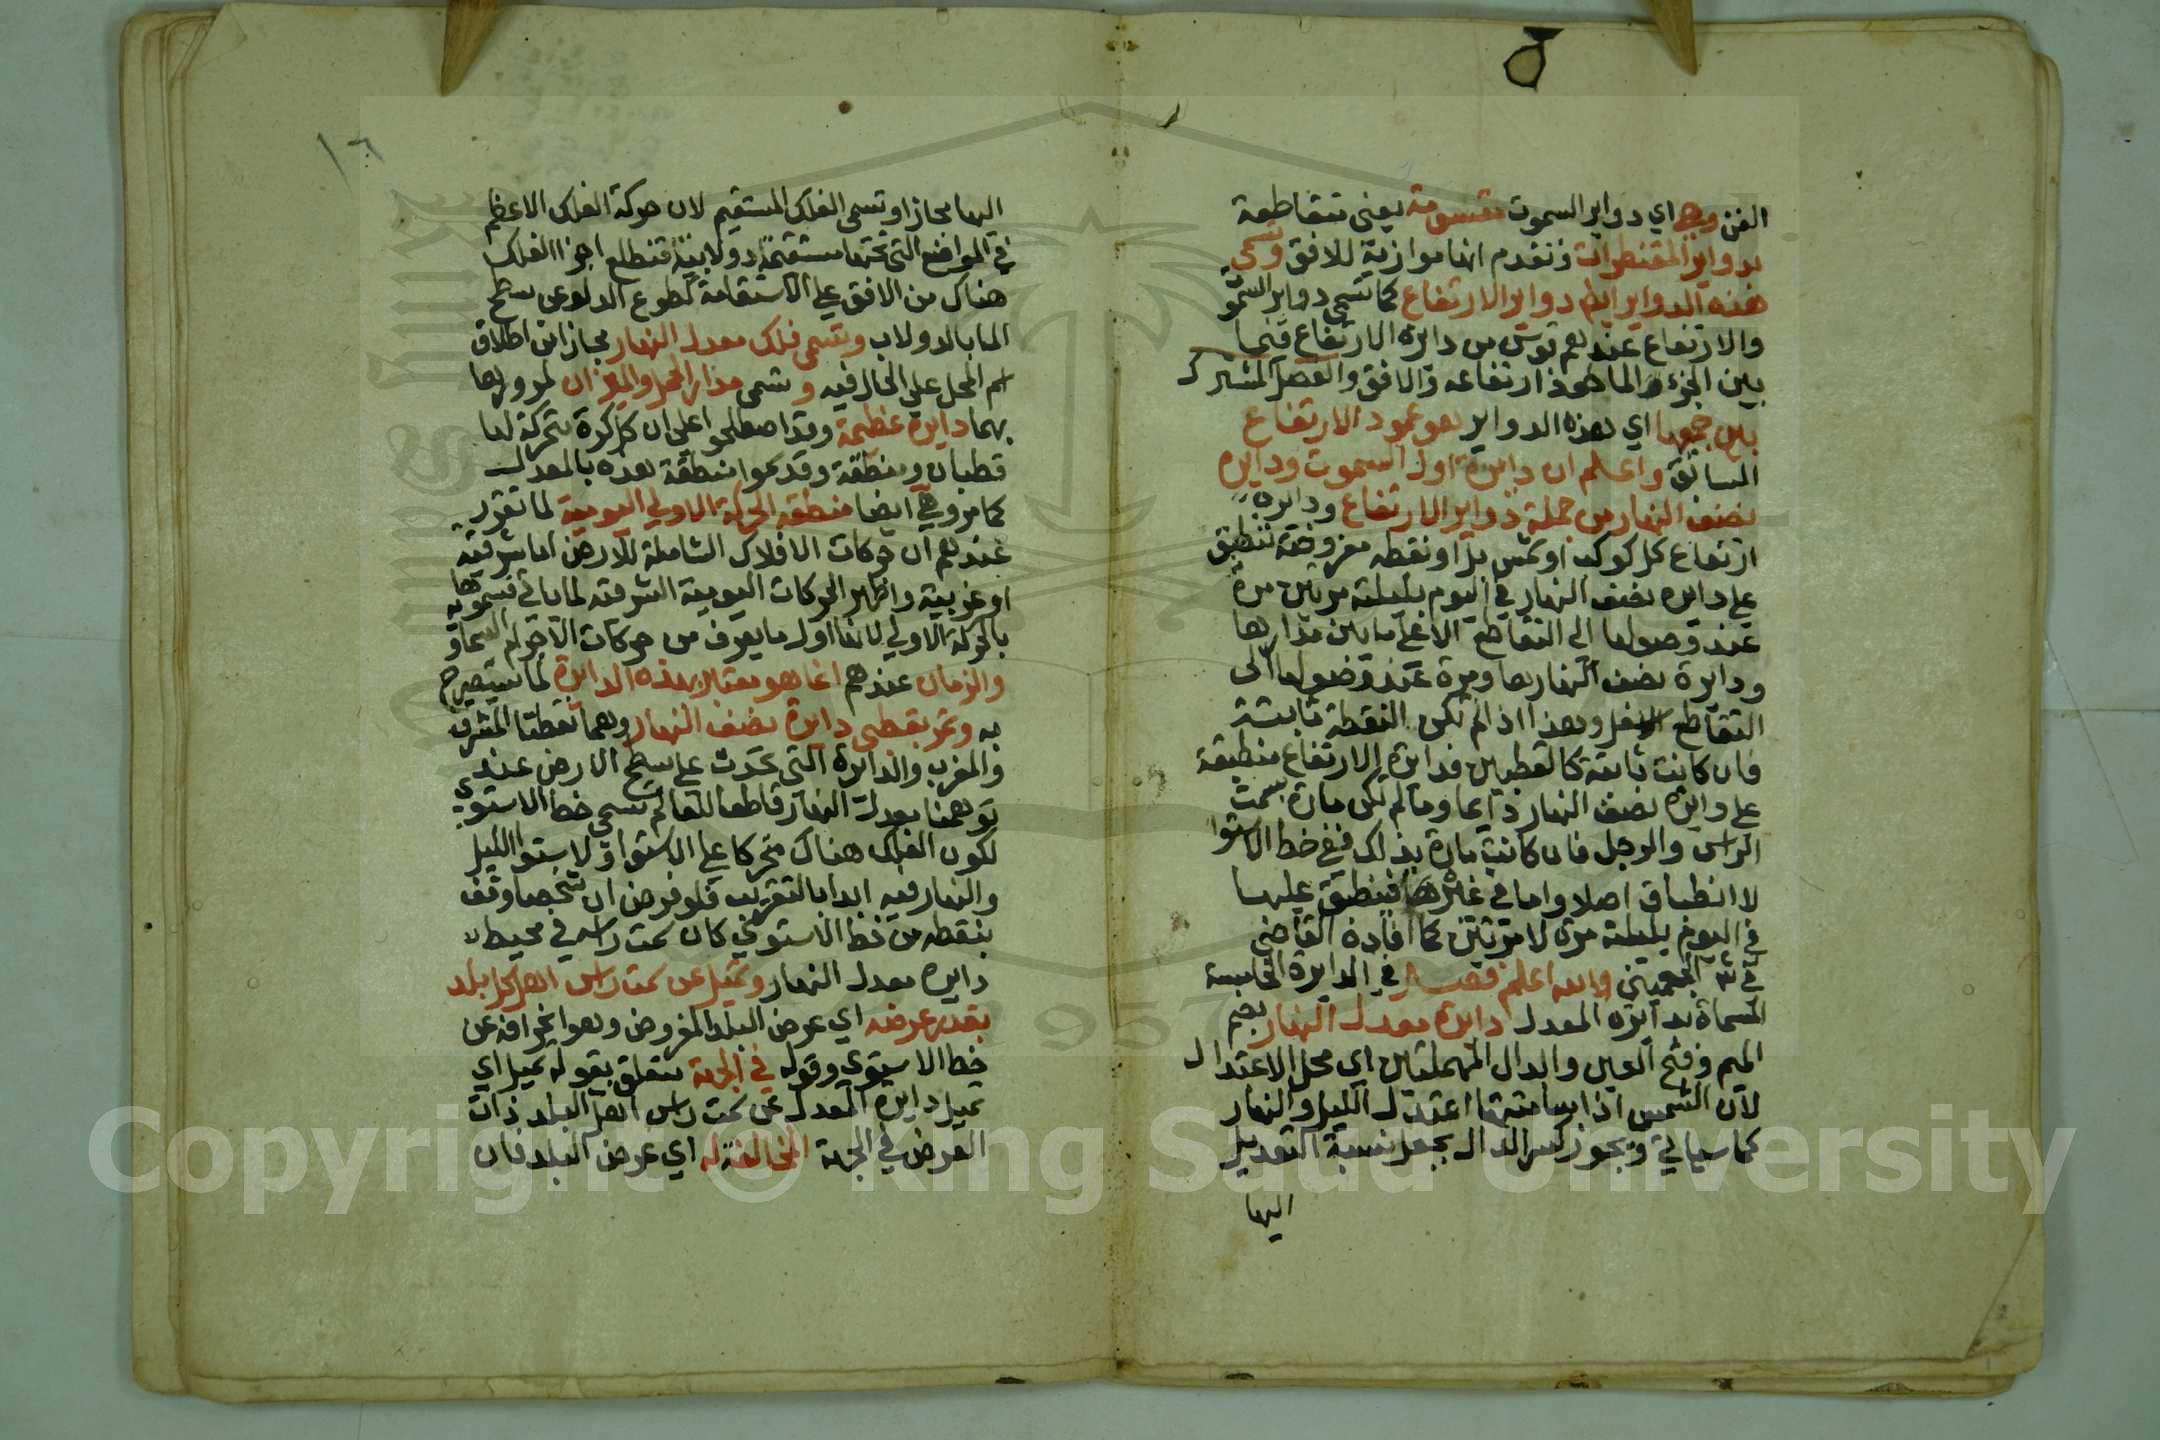 الفن وهي اي دواير السموت مقسومة يعني متقاطعة
بدواير المقنطرات وتقدم انها موازية للافق وتسمى
هذه الدواير ايضا دواير الارتفاع كما تسمى دواير السموت
والارتفاع عندهم قوس من دائرة الارتفاع فيما
بين الجزء الماخوذ ارتفاعه والافق والفصل المشترك
بين جميعها اي هذه الدواير هو عمود الارتفاع
السابق واعلم ان دايرة اول السموت ودايرة
نصف النهار من جملة دواير الارتفاع ودايرة
ارتفاع كل كوكب او شمس او نقطه مفروضة تنطبق
على دايرة نصف النهار في اليوم بليلته مرتين مرة
عند وصولها الى التقاطع الاعلى ما بين مدارها
ودايرة نصف النهار بها ومرة عند وصولها الى
التقاطع الاسفل وهذا اذا لم تكن النقطة ثابتة
فان كانت ثابتة كالقطبين فدايرة الارتفاع منطبقة
على دايرة نصف النهار دايما وما لم تكن مارة بسمت
الراس والرجل فان كانت مارة بذلك ففي خط الاستوا
لا انطباق اصلا واما في غيرها فينطبق عليها
في اليوم بليلته مرة لا مرتين كما افاده القاضي
في ش الجغميني والله اعلم فصل في الدايرة الخامسة
المسماة بدايرة المعدل دايرة معدل النهار بضم
الميم وفتح العين والدال المهملتين اي محل الاعتدال
لان الشمس اذا سامتتها اعتدل الليل والنهار
كما سياتي ويجوز كسر الدال بجعل نسبة التعديل
اليها
١٦
اليها مجازا وتسمى الفلك المستقيم لان حركة الفلك الاعظم
في المواضع التي تحتها مستقيمة دولابية فتطلع اجزا الفلك
هناك من الافق على الاستقامة كطلوع الدلو عن سطح
الما بالدولاب وتسمى فلك معدل النهار مجازا من اطلاق
اسم المحل على الحال فيه وتسمى مدار الحمل والميزان لمرورها
بهما دايرة عظيمة وقد اصطلحوا على ان كل كرة متحركة لها
قطبان ومنطقة وقد سموا منطقة هذه بالمعدل
كما مر وهي ايضا منطقة الحركة الاولى اليومية لما تقرر
عندهم ان حركات الافلاك الشاملة للارض اما شرقية
او غربية واظهر الحركات اليومية الشرقية لما ياتي فسموها
بالحركة الاولى لانها اول ما يعرف من حركات الاجرام السماوية
والزمان عندهم انما هو مقدار هذه الدايرة لما سيصرح
به وتمر بقطبي دايرة نصف النهار وهما نقطتا المشرق
والمغرب والدايرة التي تحدث على سطح الارض عند
توهمنا معدل النهار قاطعا للعالم تسمى خط الاستوي
لكون الفلك هناك متحركا على الاستوا او لاستوا الليل
والنهار فيه ابدا بالتقريب فلو فرض ان شخصا وقف
بنقطه من خط الاستوي كان سمت راسه في محيط
دايره معدل النهار وتميل عن سمت راس اهل كل بلد
بقدر عرضه اي عرض البلد المفروض وهو انحرافه عن
خط الاستوي وقوله في الجهة متعلق بقوله تميل اي
تميل دايرة المعدل عن سمت راس اهل البلد ذات
العرض في الجهة المخالفة له اي عرض البلد فان
Copyright © King Saud University
1957